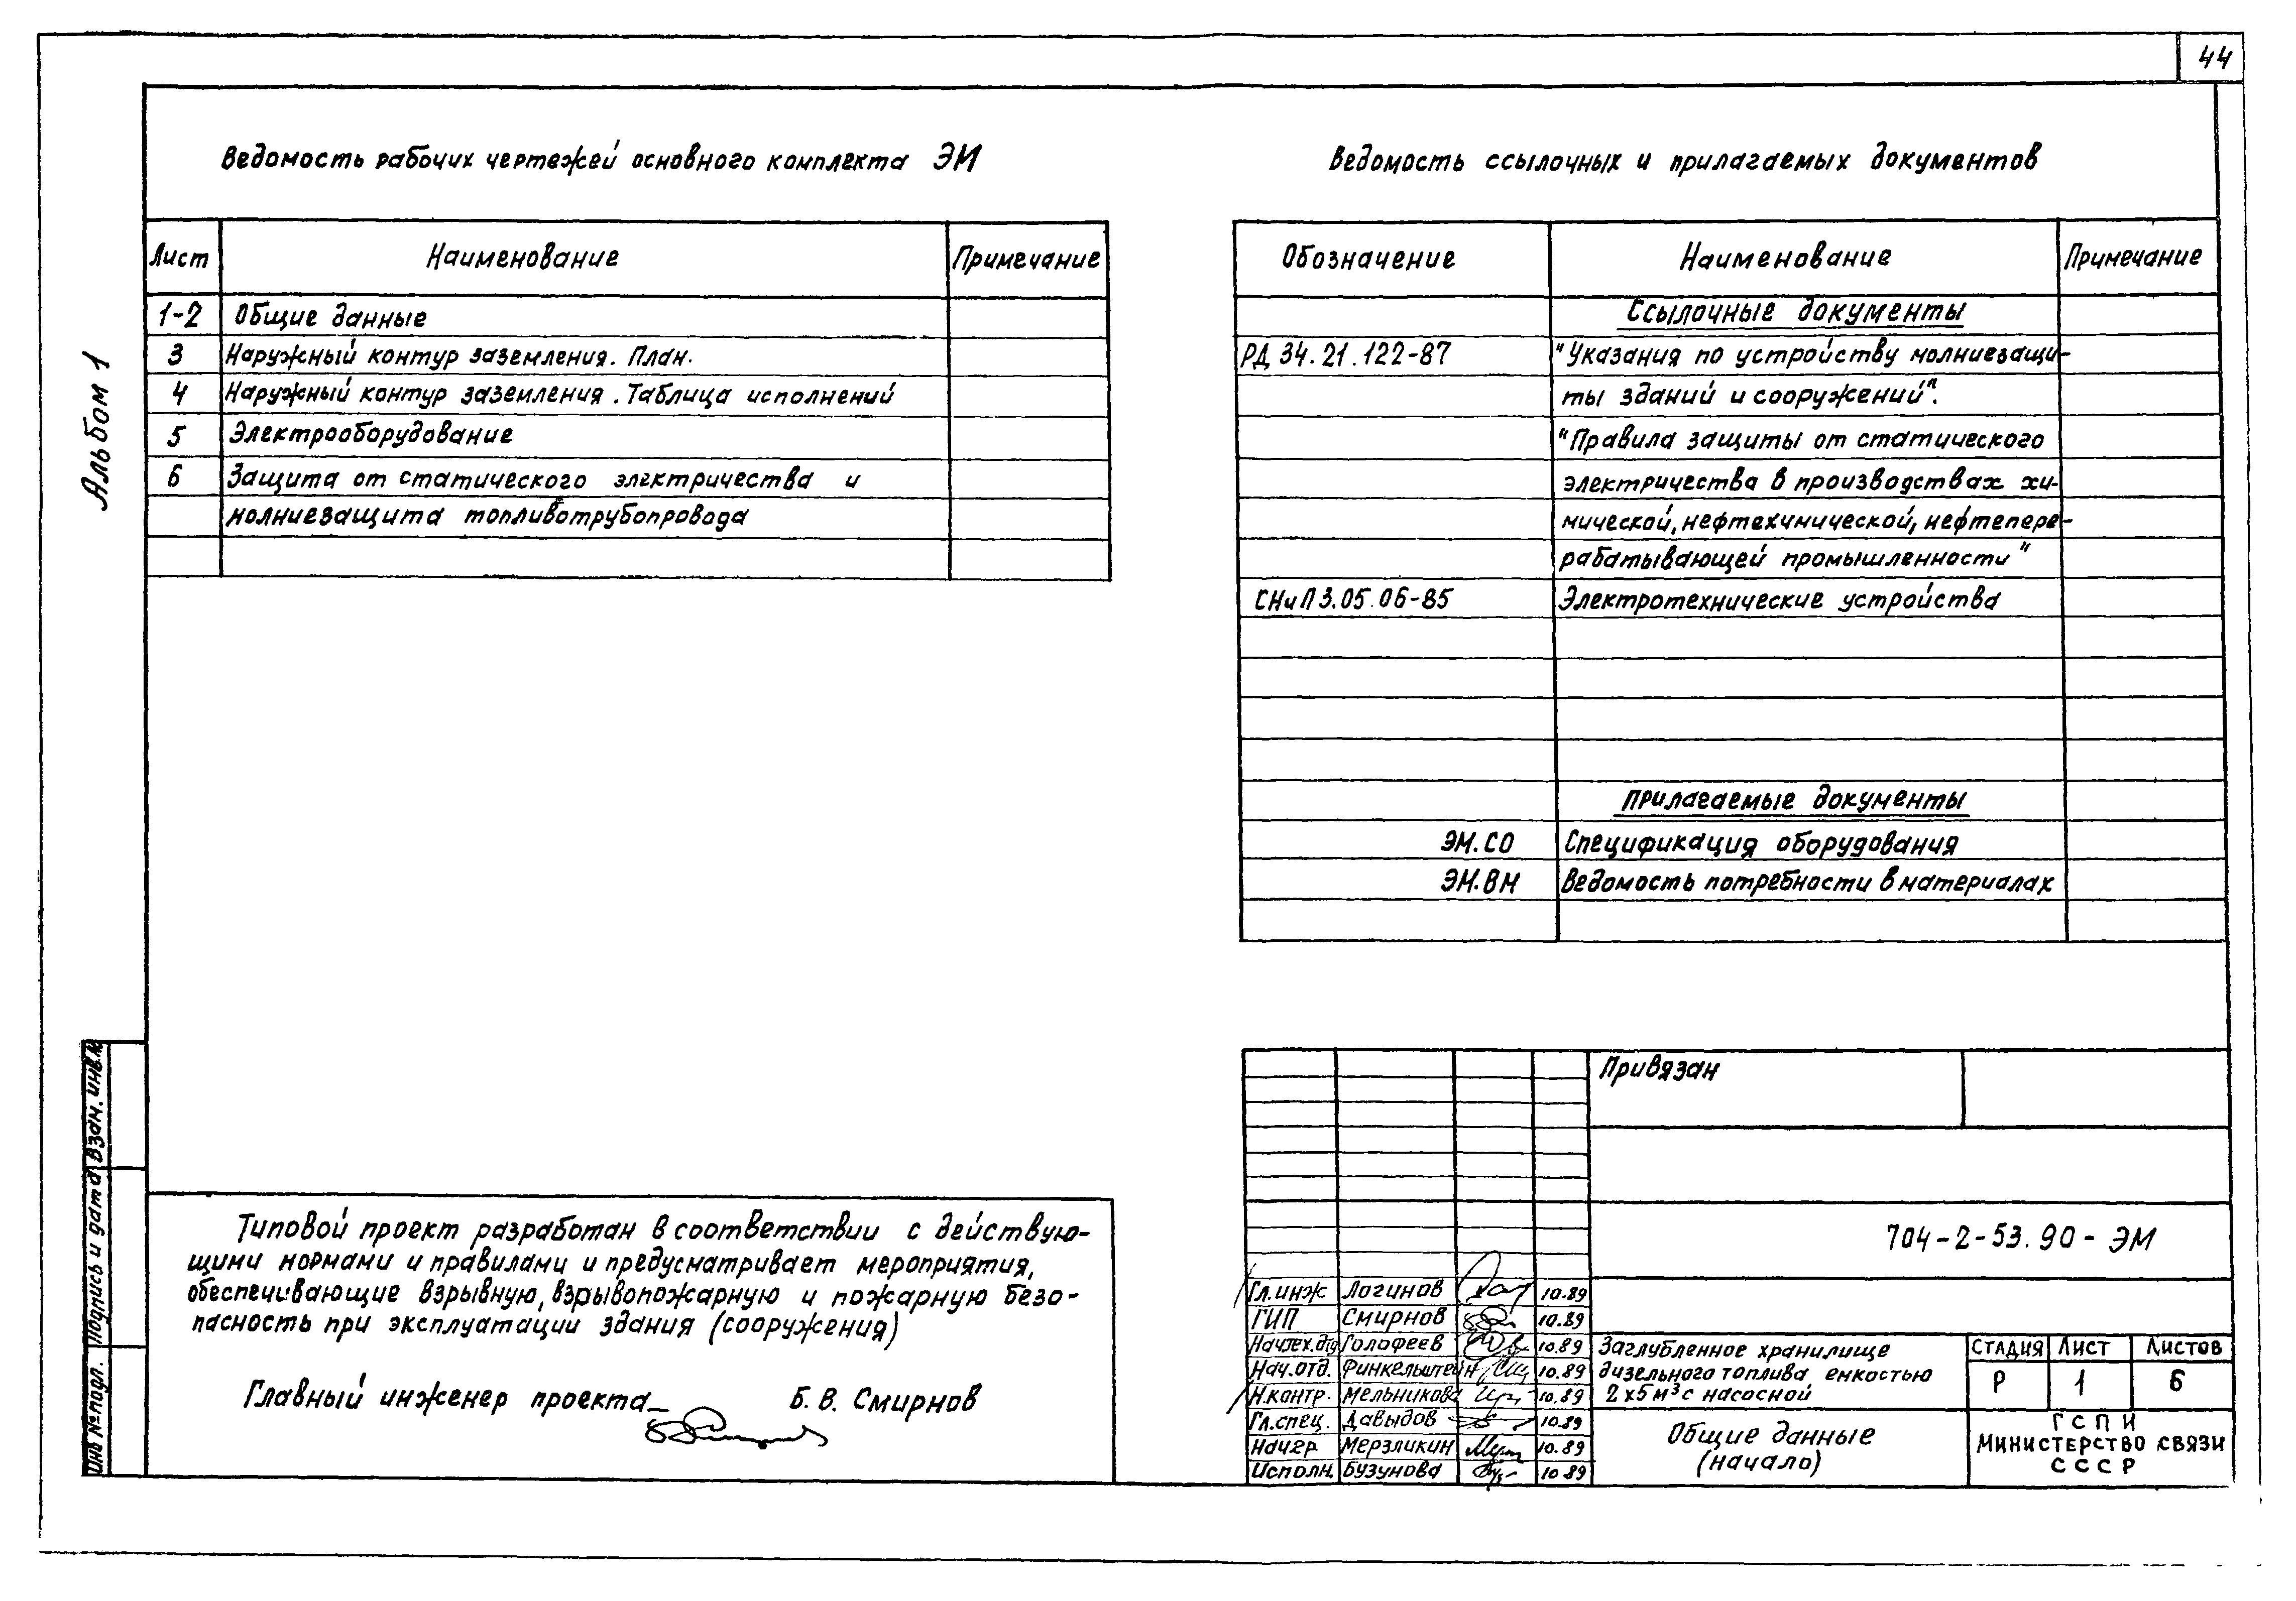 44
Альбом 1
Ведомость рабочих чертежей основного комплекта ЭМ
Лист Наименование Примечание
1-2 Общие данные
3 Наружный контур заземления. План.
4 Наружный контур заземления. Таблица исполнений
5 Электрооборудование
6 Защита от статического электричества и
молниезащита топливотрубопровода
Ведомость ссылочных и прилагаемых документов
Обозначение Наименование Примечание
Ссылочные документы
РД 34.21.122-87 "Указания по устройству молниезащи-
ты зданий и сооружений".
"Правила защиты от статического
электричества в производствах хи-
мической, нефтехимической, нефтепере-
рабатывающей промышленности"
СНиП 3.05.06-85 Электротехнические устройства
Прилагаемые документы
ЭМ.СО Спецификация оборудования
ЭМ.ВМ Ведомость потребности в материалах
Типовой проект разработан в соответствии с действую-
щими нормами и правилами и предусматривает мероприятия,
обеспечивающие взрывную, взрывопожарную и пожарную безо-
пасность при эксплуатации здания (сооружения)
Главный инженер проекта Б. В. Смирнов
Взам. инв.№
Подпись и дата
Инв № подл.
Привязан
704-2-53.90-ЭМ
Гл.инж Логинов 10.89
ГИП Смирнов 10.89
Нач.тех.отд Голофеев 10.89
Нач.отд. Финкельштейн 10.89
Н.контр. Мельникова 10.89
Гл.спец. Давыдов 10.89
Нач.гр Мерзликин 10.89
Исполн. Бузунова 10 89
Заглубленное хранилище
дизельного топлива емкостью
2х5м³ с насосной
Стадия Лист Листов
Р 1 6
Общие данные
(начало)
ГСПИ
Министерство связи
СССР